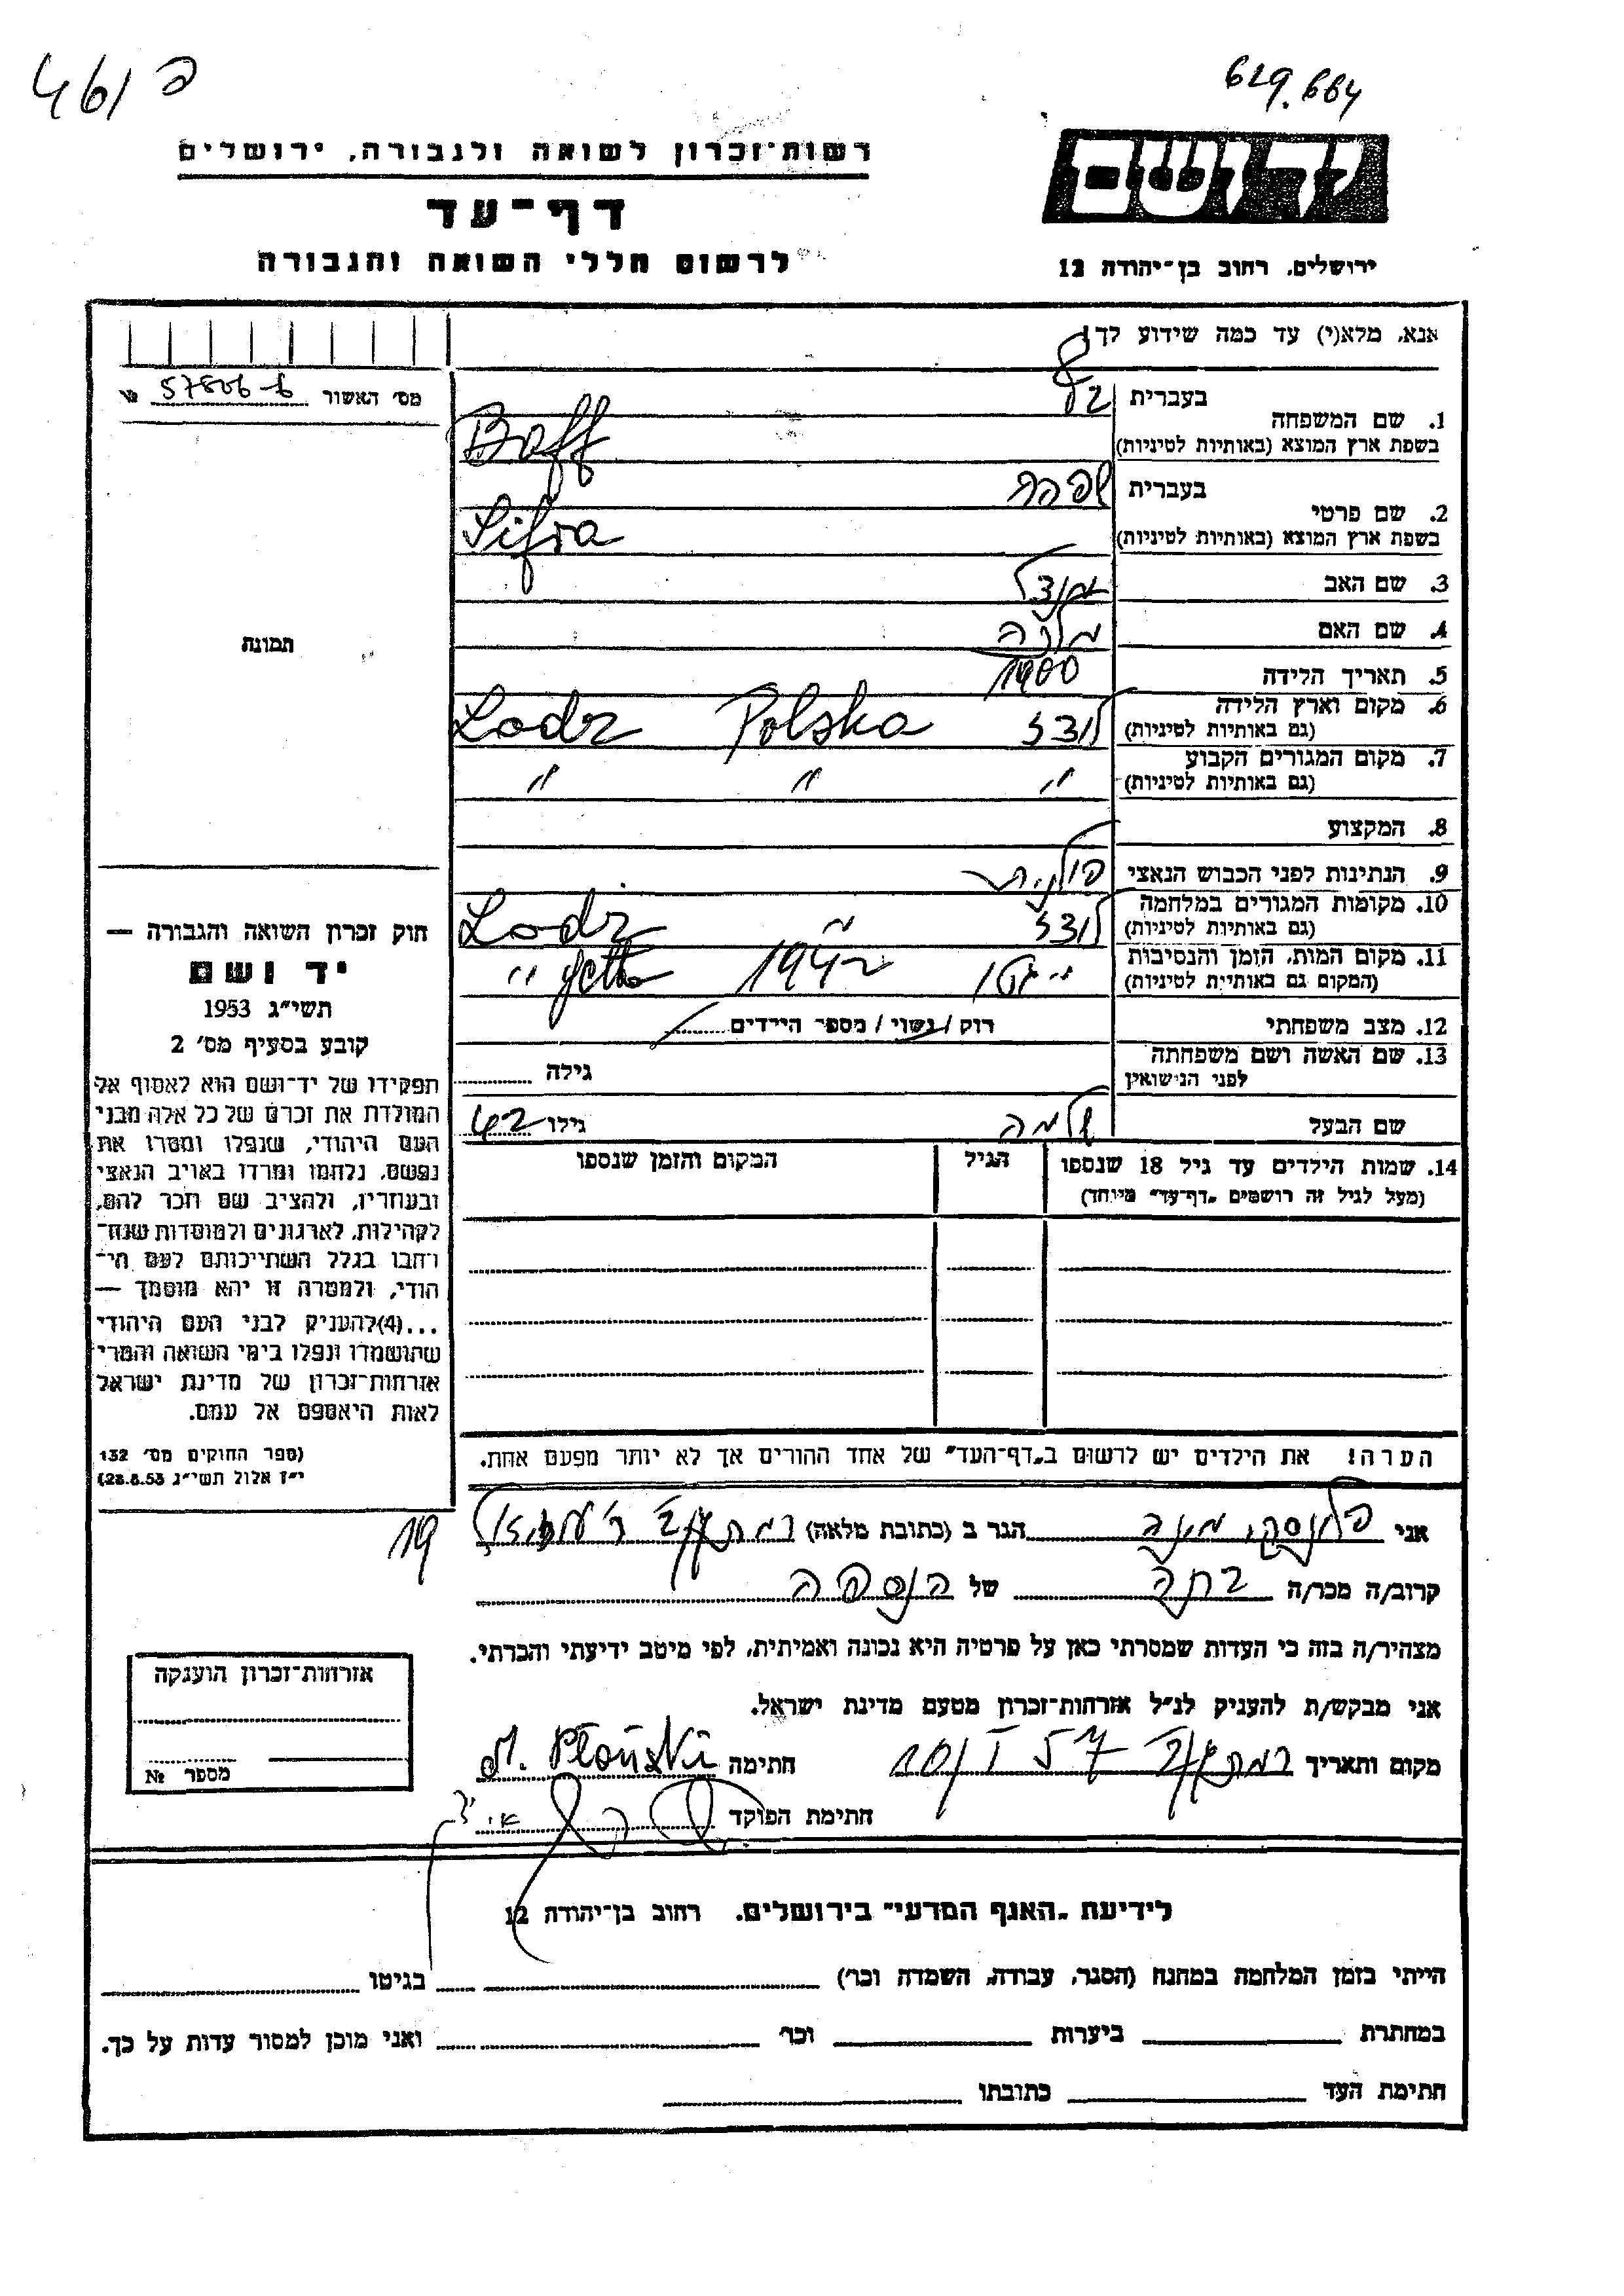 461 פ
629.664
רשות־זכרון לשואה ולגבורה, ירושלים
דף־עד
לרשום חללי השואה והגבורה
יד ושם
ירושלים, רחוב בן־יהודה 12
אנא, מלא(י) עד כמה שידוע לך!
מס׳ האשור 57806-б №
1. שם המשפחה
בעברית
בשפת ארץ המוצא (באותיות לטיניות) Baff
2. שם פרטי
בעברית שפרה
בשפת ארץ המוצא (באותיות לטיניות) Sifra
3. שם האב מנדל
4. שם האם
5. תאריך הלידה 1900
6. מקום וארץ הלידה לודז Polska Lodz
(גם באותיות לטיניות)
7. מקום המגורים הקבוע " " "
(גם באותיות לטיניות)
8. המקצוע
9. הנתינות לפני הכבוש הנאצי פולנית
10. מקומות המגורים במלחמה לודז " Lodz
(גם באותיות לטיניות)
11. מקום המות, הזמן והנסיבות " גטו 1942 " getto
(המקום גם באותיות לטיניות)
12. מצב משפחתי רוק / נשוי / מספר הילדים
13. שם האשה ושם משפחתה גילה
לפני הנישואין
שם הבעל שלמה גילו 42
14. שמות הילדים עד גיל 18 שנספו
(מעל לגיל זה רושמים „דף־עד" מיוחד)
הגיל
המקום והזמן שנספו
תמונה
חוק זכרון השואה והגבורה —
יד ושם
תשי״ג 1953
קובע בסעיף מס׳ 2
תפקידו של יד־ושם הוא לאסוף אל
המולדת את זכרם של כל אלה מבני
העם היהודי, שנפלו ומסרו את
נפשם, נלחמו ומרדו באויב הנאצי
ובעוזריו, ולהציב שם וזכר להם,
לקהילות, לארגונים ולמוסדות שנח־
רבו בגלל השתייכותם לעם הי־
הודי, ולמטרה זו יהא מוסמך —
...(4)להעניק לבני העם היהודי
שהושמדו ונפלו בימי השואה והמרי
אזרחות־זכרון של מדינת ישראל
לאות היאספם אל עמם.
(ספר החוקים מס׳ 132
י״ז אלול תשי״ג 28.8.53)
הערה! את הילדים יש לרשום ב„דף־העד" של אחד ההורים אך לא יותר מפעם אחת.
אני הגר ב (כתובת מלאה)
19
קרוב/ה מכר/ה של הנספה
מצהיר/ה בזה כי העדות שמסרתי כאן על פרטיה היא נכונה ואמיתית, לפי מיטב ידיעתי והכרתי.
אני מבקש/ת להעניק לנ״ל אזרחות־זכרון מטעם מדינת ישראל.
מקום ותאריך 10/I 57 חתימה M. Płoński
חתימת הפוקד
אזרחות־זכרון הוענקה
מספר №
לידיעת „האגף המדעי" בירושלים, רחוב בן־יהודה 12
הייתי בזמן המלחמה במחנה (הסגר, עבודה, השמדה וכו׳) בגיטו
במחתרת ביערות וכו׳ ואני מוכן למסור עדות על כך.
חתימת העד כתובתו